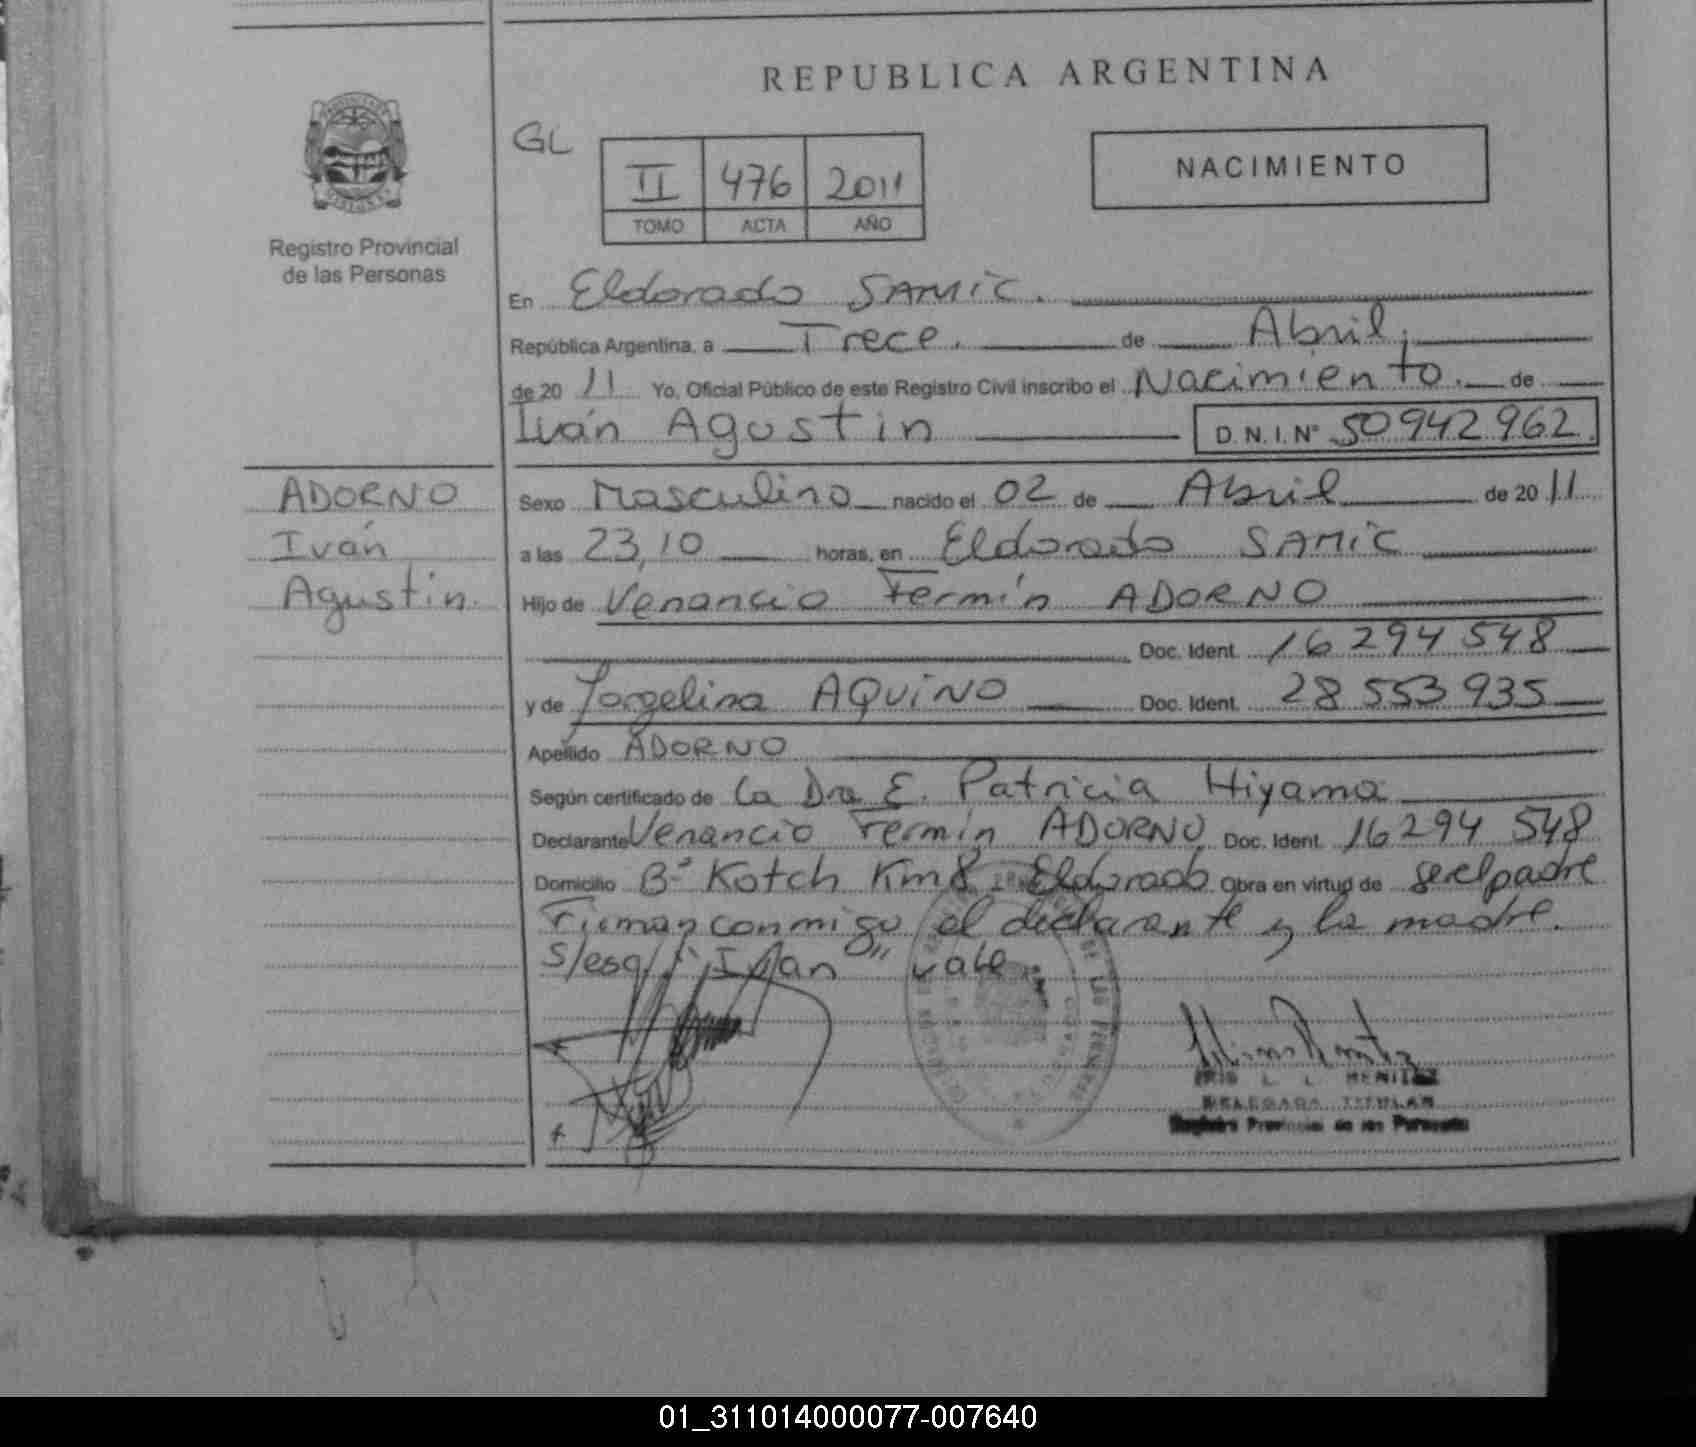 REPUBLICA ARGENTINA
GL
II 476 2011
TOMO ACTA AÑO
NACIMIENTO
Registro Provincial
de las Personas
En Eldorado SAMIC.
República Argentina, a Trece. de Abril,
de 20 11 Yo, Oficial Público de este Registro Civil inscribo el Nacimiento. de
Iván Agustin D.N.I.Nº 50942962
ADORNO
Iván
Agustin.
Sexo Masculino nacido el 02 de Abril de 20 11
a las 23,10 horas, en Eldorado SAMIC
Hijo de Venancio Fermín ADORNO
Doc. Ident. 16 294 548
y de Jorgelina AQUINO Doc. Ident. 28 553 935
Apellido ADORNO
Según certificado de la Dra E. Patricia Hiyama
Declarante Venancio Fermín ADORNO, Doc. Ident. 16294 548
Domicilio Bº Kotch Km8 Eldorado Obra en virtud de ser el padre
Firman conmigo el declarante y la madre.
S/esq/ "Ivan" vale
L. L. BENITEZ
DELEGADA TITULAR
Registro Provincial de las Personas
01_311014000077-007640